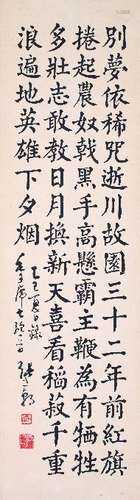 別夢依稀咒逝川故園三十二年前紅旗
捲起農奴戟黑手高懸霸主鞭為有犧牲
多壯志敢教日月換新天喜看稻菽千重
浪遍地英雄下夕烟
夏日錄
毛主席七律一首